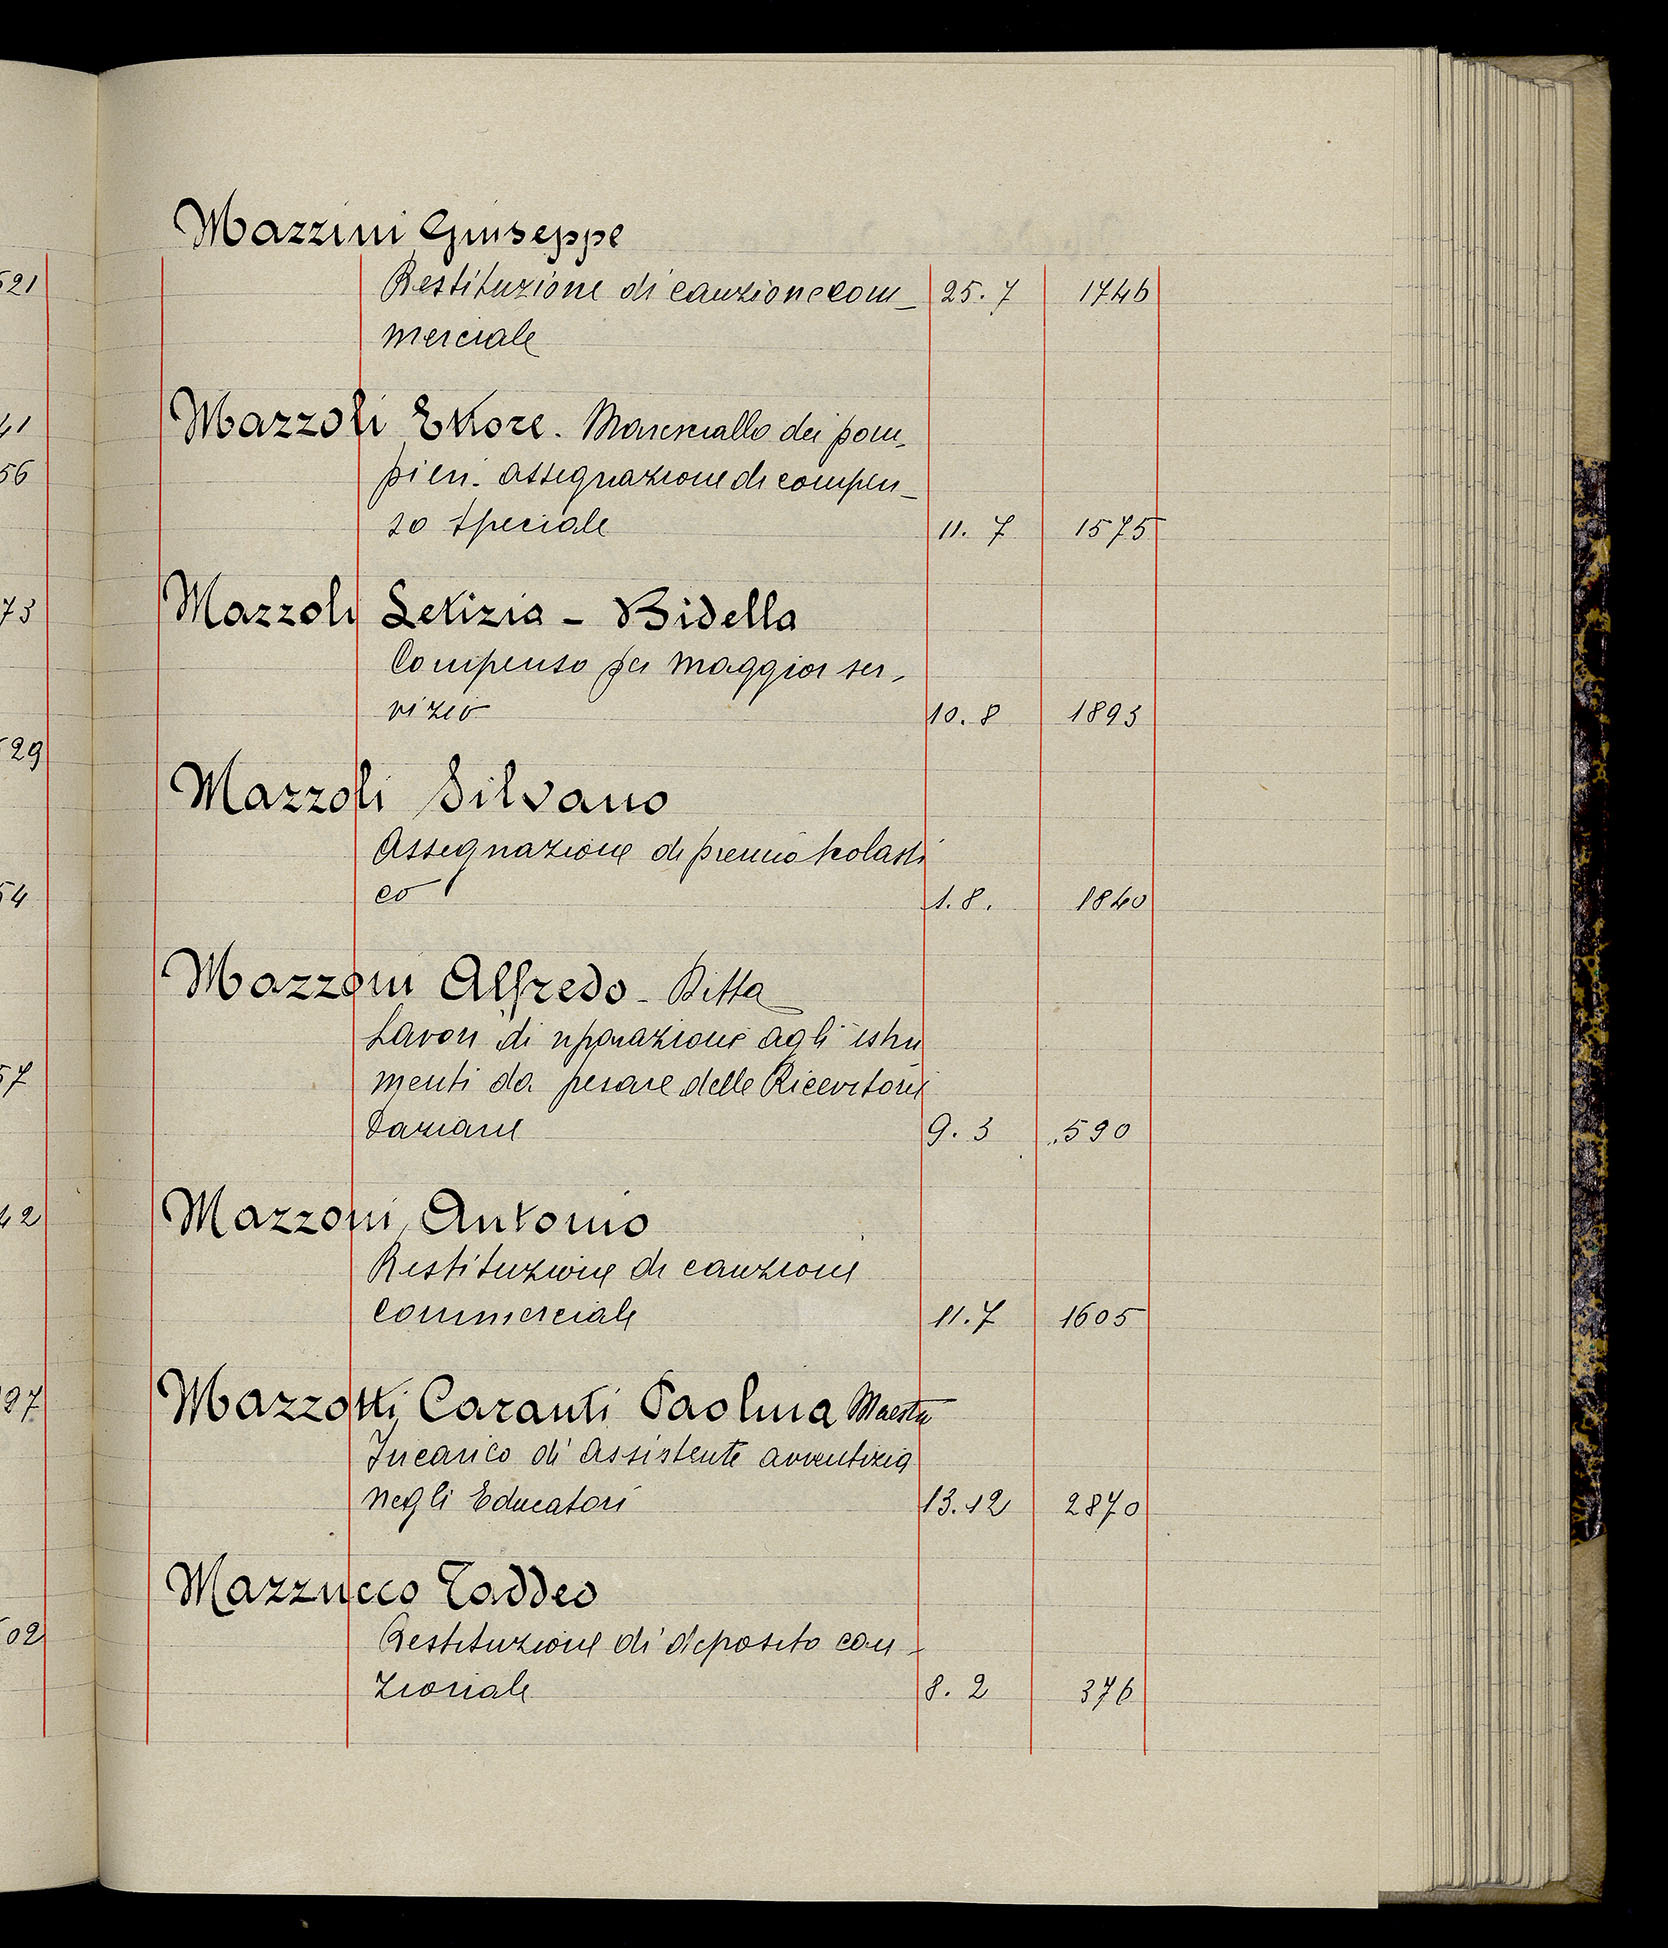 Mazzini Giuseppe
521
Restituzione di cauzione com- 25.7 1746
merciale
41
Mazzoli Ettore. Maresciallo dei pom-
56
pieri. Assegnazione di compen-
so speciale 11. 7 1575
73
Mazzoli Letizia - Bidella
Compenso per maggior ser-
vizio 10. 8 1893
29
Mazzoli Silvano
Assegnazione di premio scolasti
co 1. 8. 1840
54
Mazzoni Alfredo - Ditta
Lavori di riparazione agli istru
57
menti da pesare delle Ricevitorie
Daziarie 9. 3 590
42
Mazzoni Antonio
Restituzione di cauzione
commerciale 11. 7 1605
97
Mazzotti Caranti Paolina Maestra
Incarico di Assistente avventizia
negli Educatori 13. 12 2870
Mazzucco Taddeo
02
Restituzione di deposito cau-
zionale 8. 2 376